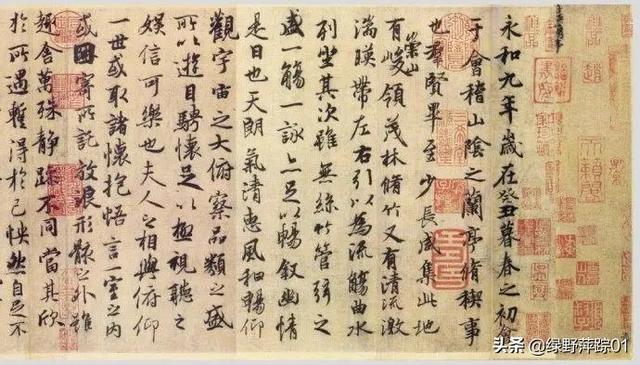 永和九年歲在癸丑暮春之初會
于會稽山陰之蘭亭脩稧事
也羣賢畢至少長咸集此地
有崇山峻領茂林脩竹又有清流激
湍暎帶左右引以為流觴曲水
列坐其次雖無絲竹管弦之
盛一觴一詠亦足以暢叙幽情
是日也天朗氣清惠風和暢仰
觀宇宙之大俯察品類之盛
所以遊目騁懷足以極視聽之
娛信可樂也夫人之相與俯仰
一世或取諸懷抱悟言一室之內
或因寄所託放浪形骸之外雖
趣舍萬殊静躁不同當其欣
於所遇蹔得於己怏然自足不
头条 @绿野萍踪01